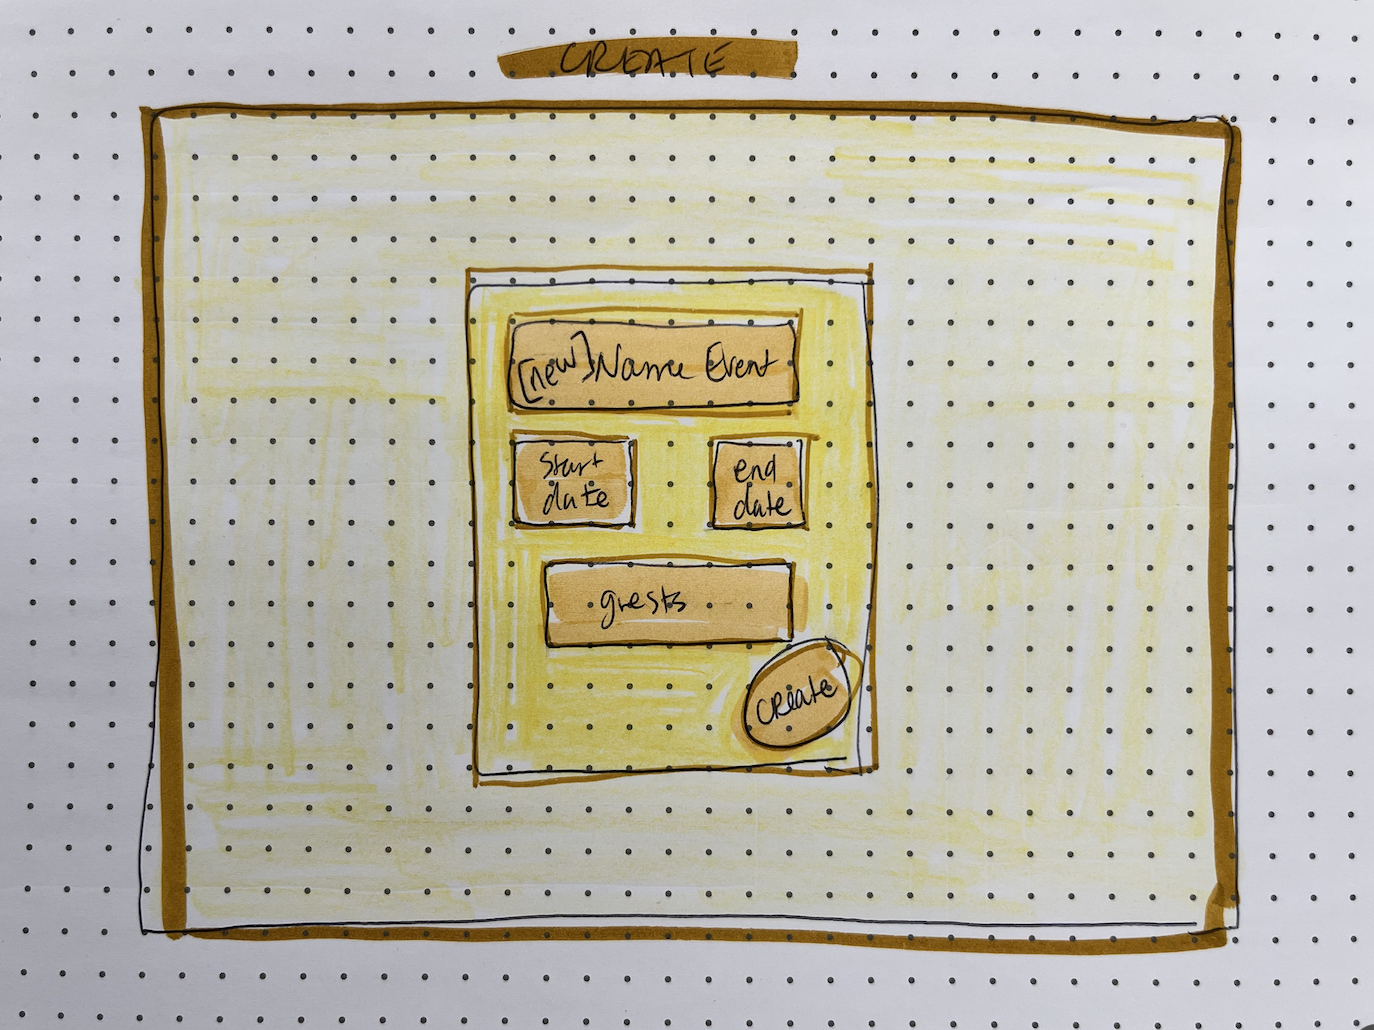 CREATE
[new] Name Event
start
date
end
date
guests
create